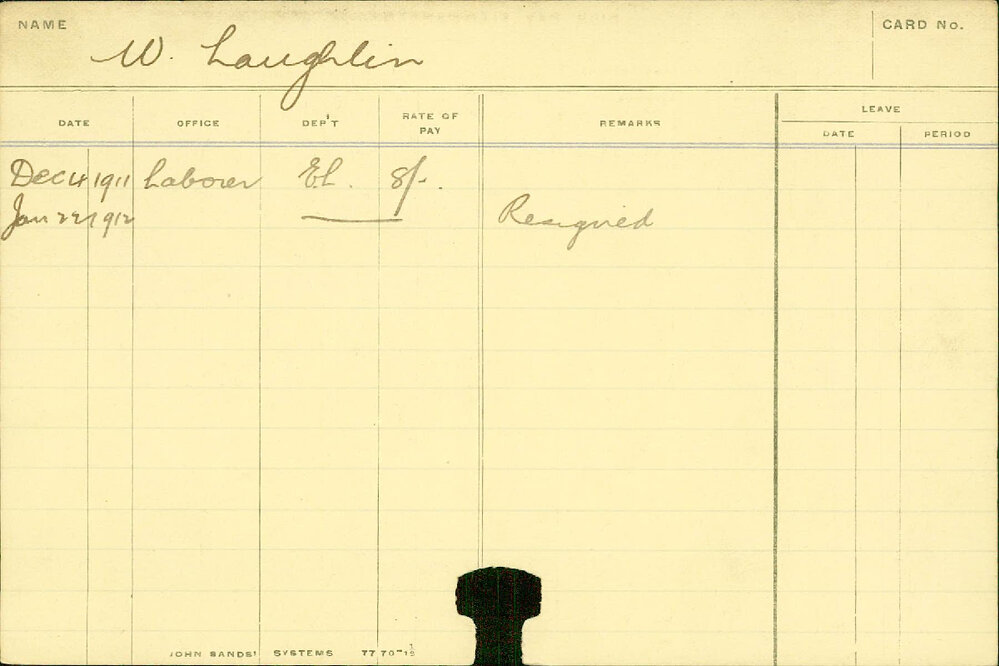 NAME W. Laughlin CARD No.
LEAVE
DATE OFFICE DEP'T RATE OF PAY REMARKS DATE PERIOD
Dec 4 1911 Laborer EL. 8/-.
Jan 22 1912 Resigned
JOHN SANDS' SYSTEMS